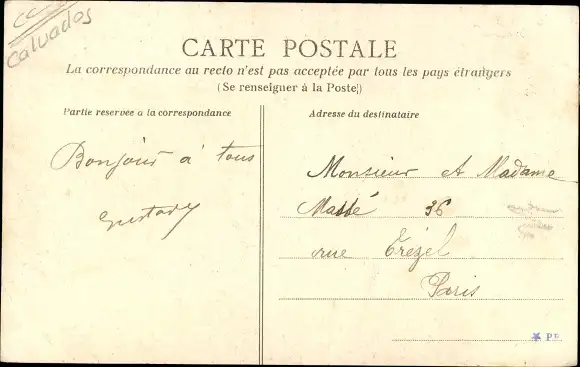 Calvados
CARTE POSTALE
La correspondance au recto n'est pas acceptée par tous les pays étrangers
(Se renseigner à la Poste)
Partie reservée à la correspondance
Bonjour à tous
Gustave
Adresse du destinataire
Monsieur et Madame
Massé 36
rue Trézel
Paris
P.P.